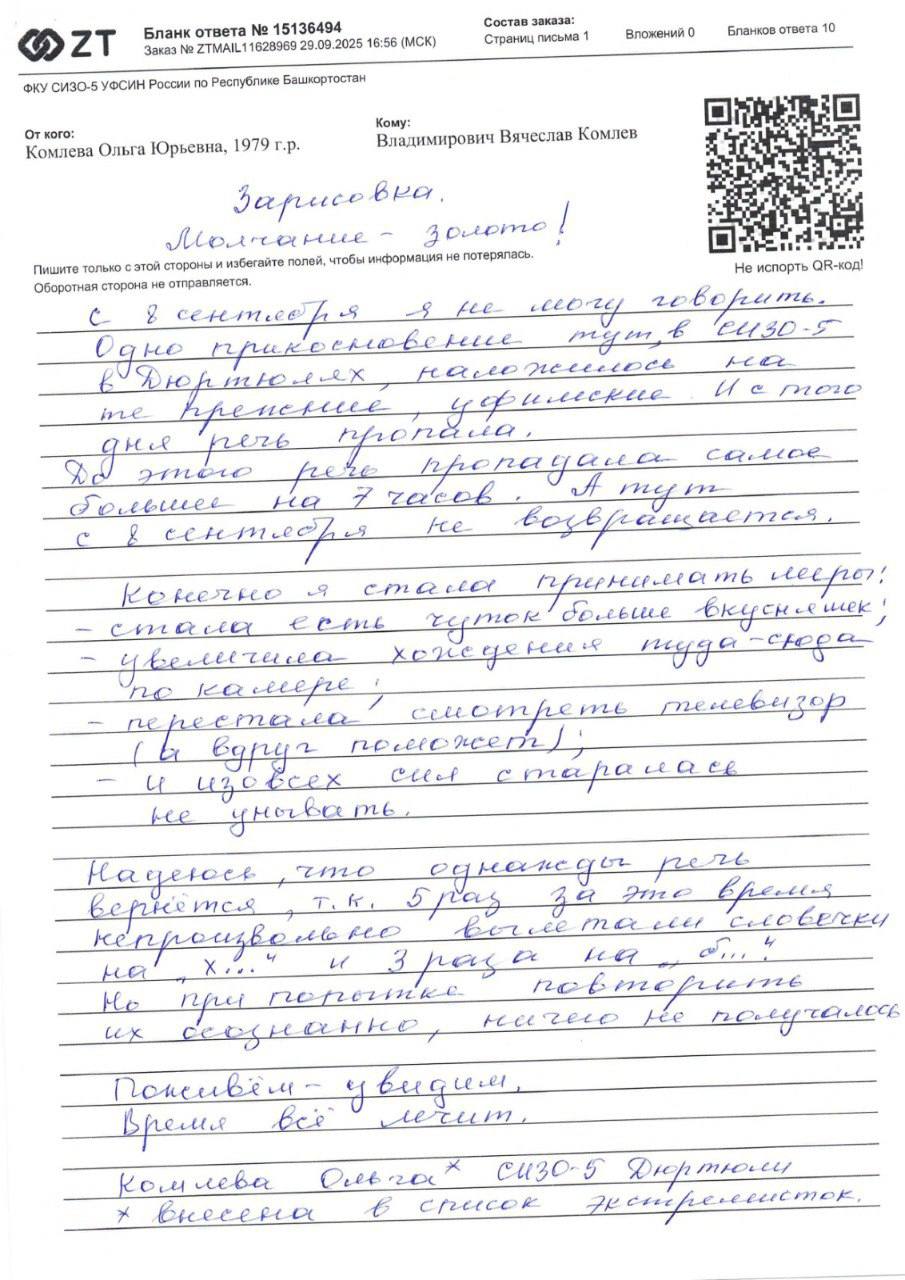 ZT
Бланк ответа № 15136494
Заказ № ZTMAIL11628969 29.09.2025 16:56 (МСК)
Состав заказа:
Страниц письма 1 Вложений 0 Бланков ответа 10
ФКУ СИЗО-5 УФСИН России по Республике Башкортостан
От кого:
Комлева Ольга Юрьевна, 1979 г.р.
Кому:
Владимирович Вячеслав Комлев
Зарисовка.
Молчание - золото!
Пишите только с этой стороны и избегайте полей, чтобы информация не потерялась.
Оборотная сторона не отправляется.
Не испорть QR-код!
С 8 сентября я не могу говорить.
Одно прикосновение тут, в СИЗО-5
в Дюртюлях, наложилось на
те прежние, уфимские. И с того
дня речь пропала.
До этого речь пропадала самое
большее на 7 часов. А тут
с 8 сентября не возвращается.
Конечно я стала принимать меры:
- стала есть чуток больше вкусняшек;
- увеличила хождения туда-сюда
по камере;
- перестала смотреть телевизор
(а вдруг поможет);
- и изо всех сил старалась
не унывать.
Надеюсь, что однажды речь
вернётся, т.к. 5 раз за это время
непроизвольно вылетали словечки
на „х..." и 3 раза на „б...".
Но при попытке повторить
их осознанно, ничего не получалось
Поживём - увидим.
Время всё лечит.
Комлева Ольга* СИЗО-5 Дюртюли
* внесена в список экстремисток.